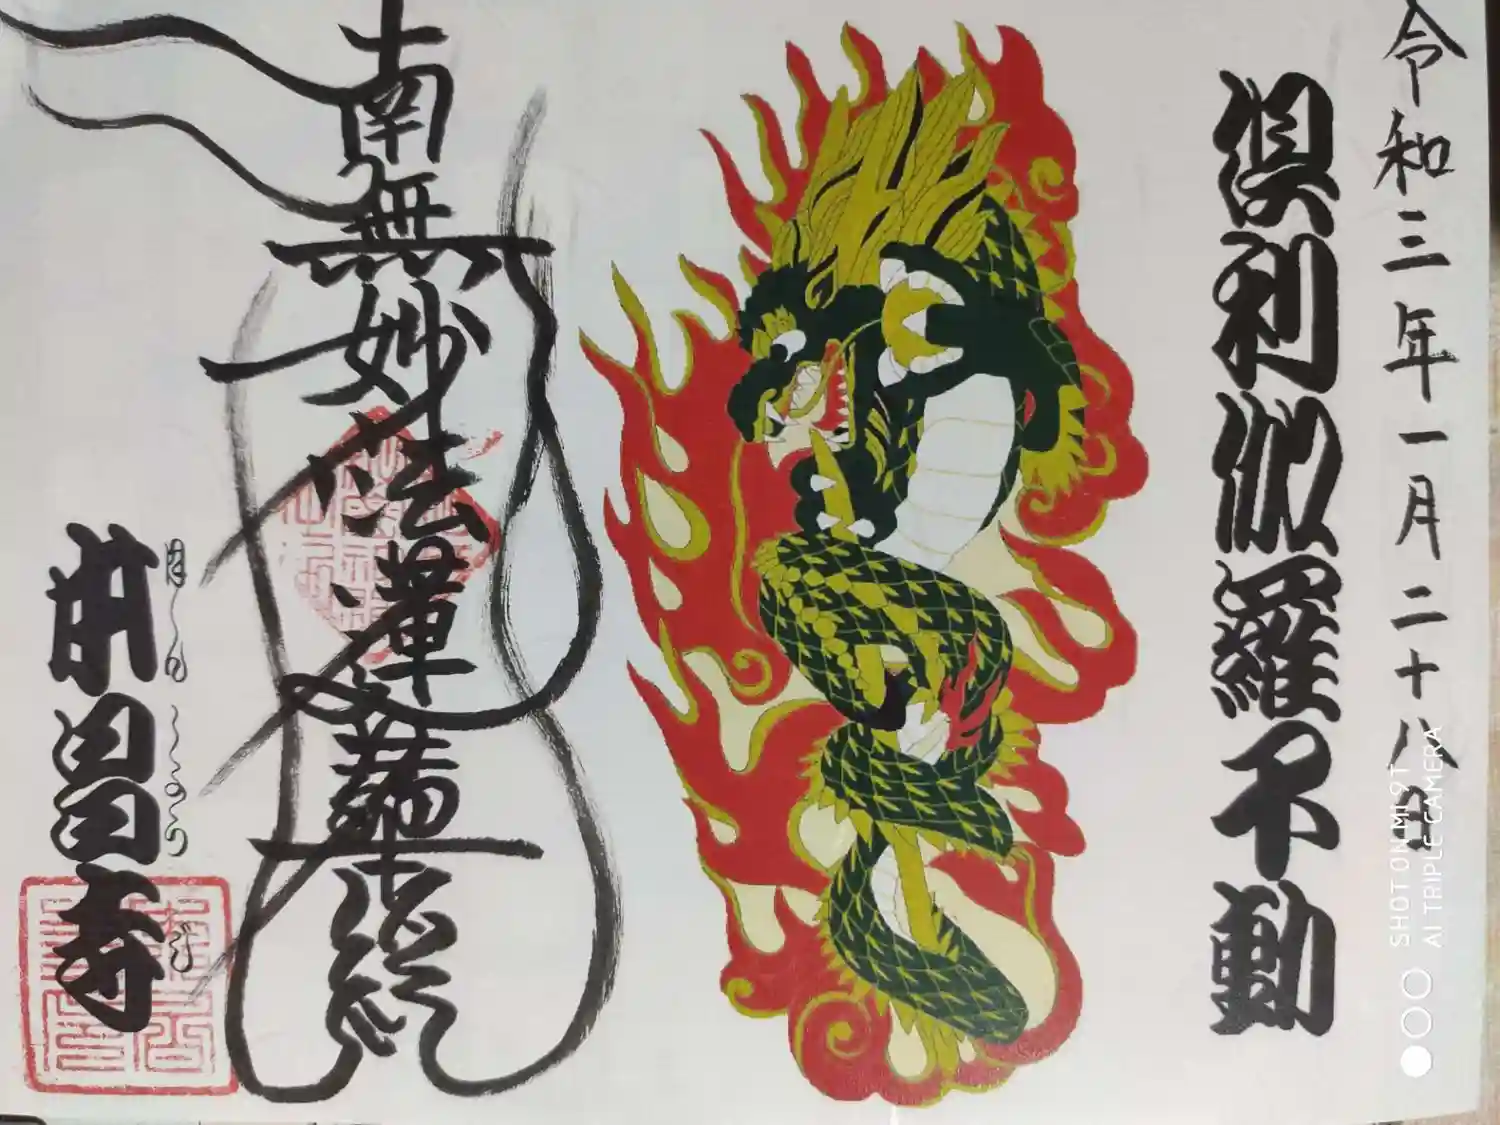 令和三年一月二十八日
倶利伽羅不動
南無妙法蓮華経
昌寺
SHOT ON MI 9T
AI TRIPLE CAMERA